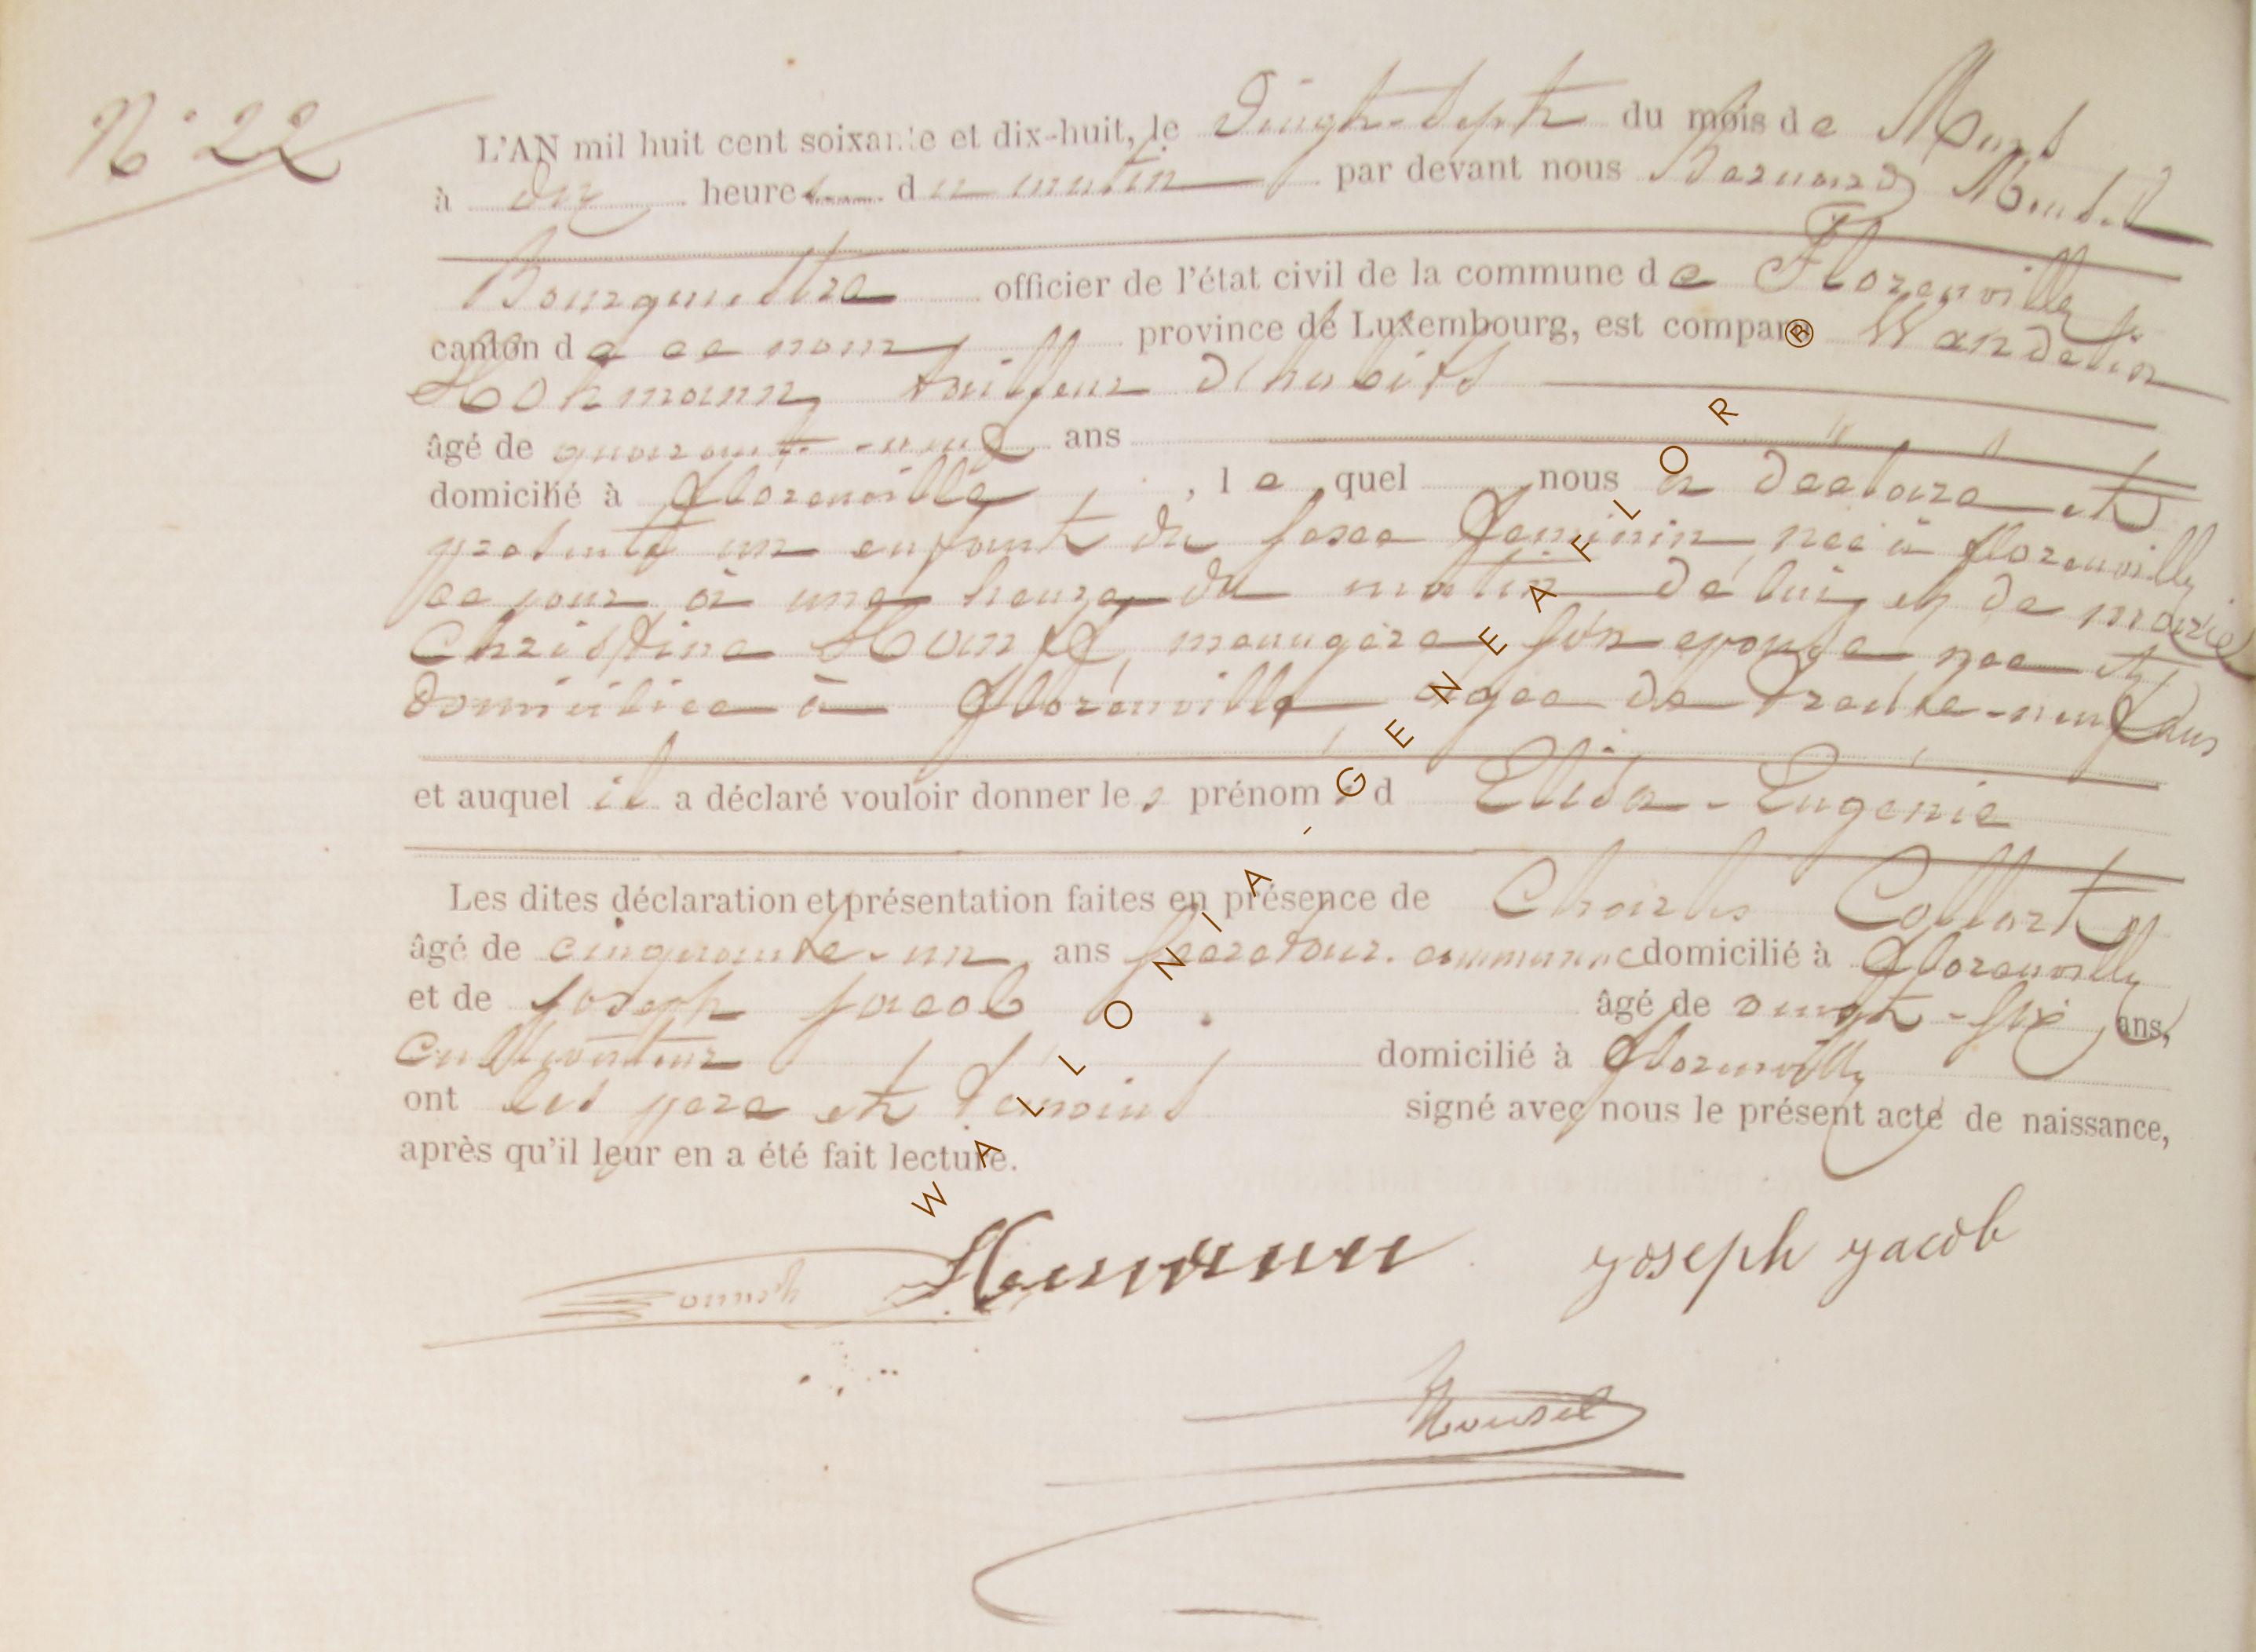 N° 22
L'AN mil huit cent soixante et dix-huit, le Vingt-Sept du mois de Mars
à dix heures du matin par devant nous Bernard Mousel
Bourgmestre officier de l'état civil de la commune de Florenville
canton de ce nom province de Luxembourg, est comparu Wandelin
Hohmann, tailleur d'habits
âgé de quarante-neuf ans
domicilié à Florenville, lequel nous a déclaré et
présenté un enfant du sexe féminin, née à florenville
ce jour à une heure du matin de lui et de marie
Christine ménagère son épouse née et
domiciliée à Florenville agée de trente-neuf ans
et auquel il a déclaré vouloir donner les prénoms d Elisa-Eugénie
Les dites déclaration et présentation faites en présence de Charles Collart
âgé de cinquante-un ans Secrétaire communal domicilié à Florenville
et de Joseph Jacob âgé de vingt-six ans,
Cultivateur domicilié à Florenville
ont les père et témoins signé avec nous le présent acte de naissance,
après qu'il leur en a été fait lecture.
joseph jacob
Mousel
WALLONIA - GENEAFLOR ®